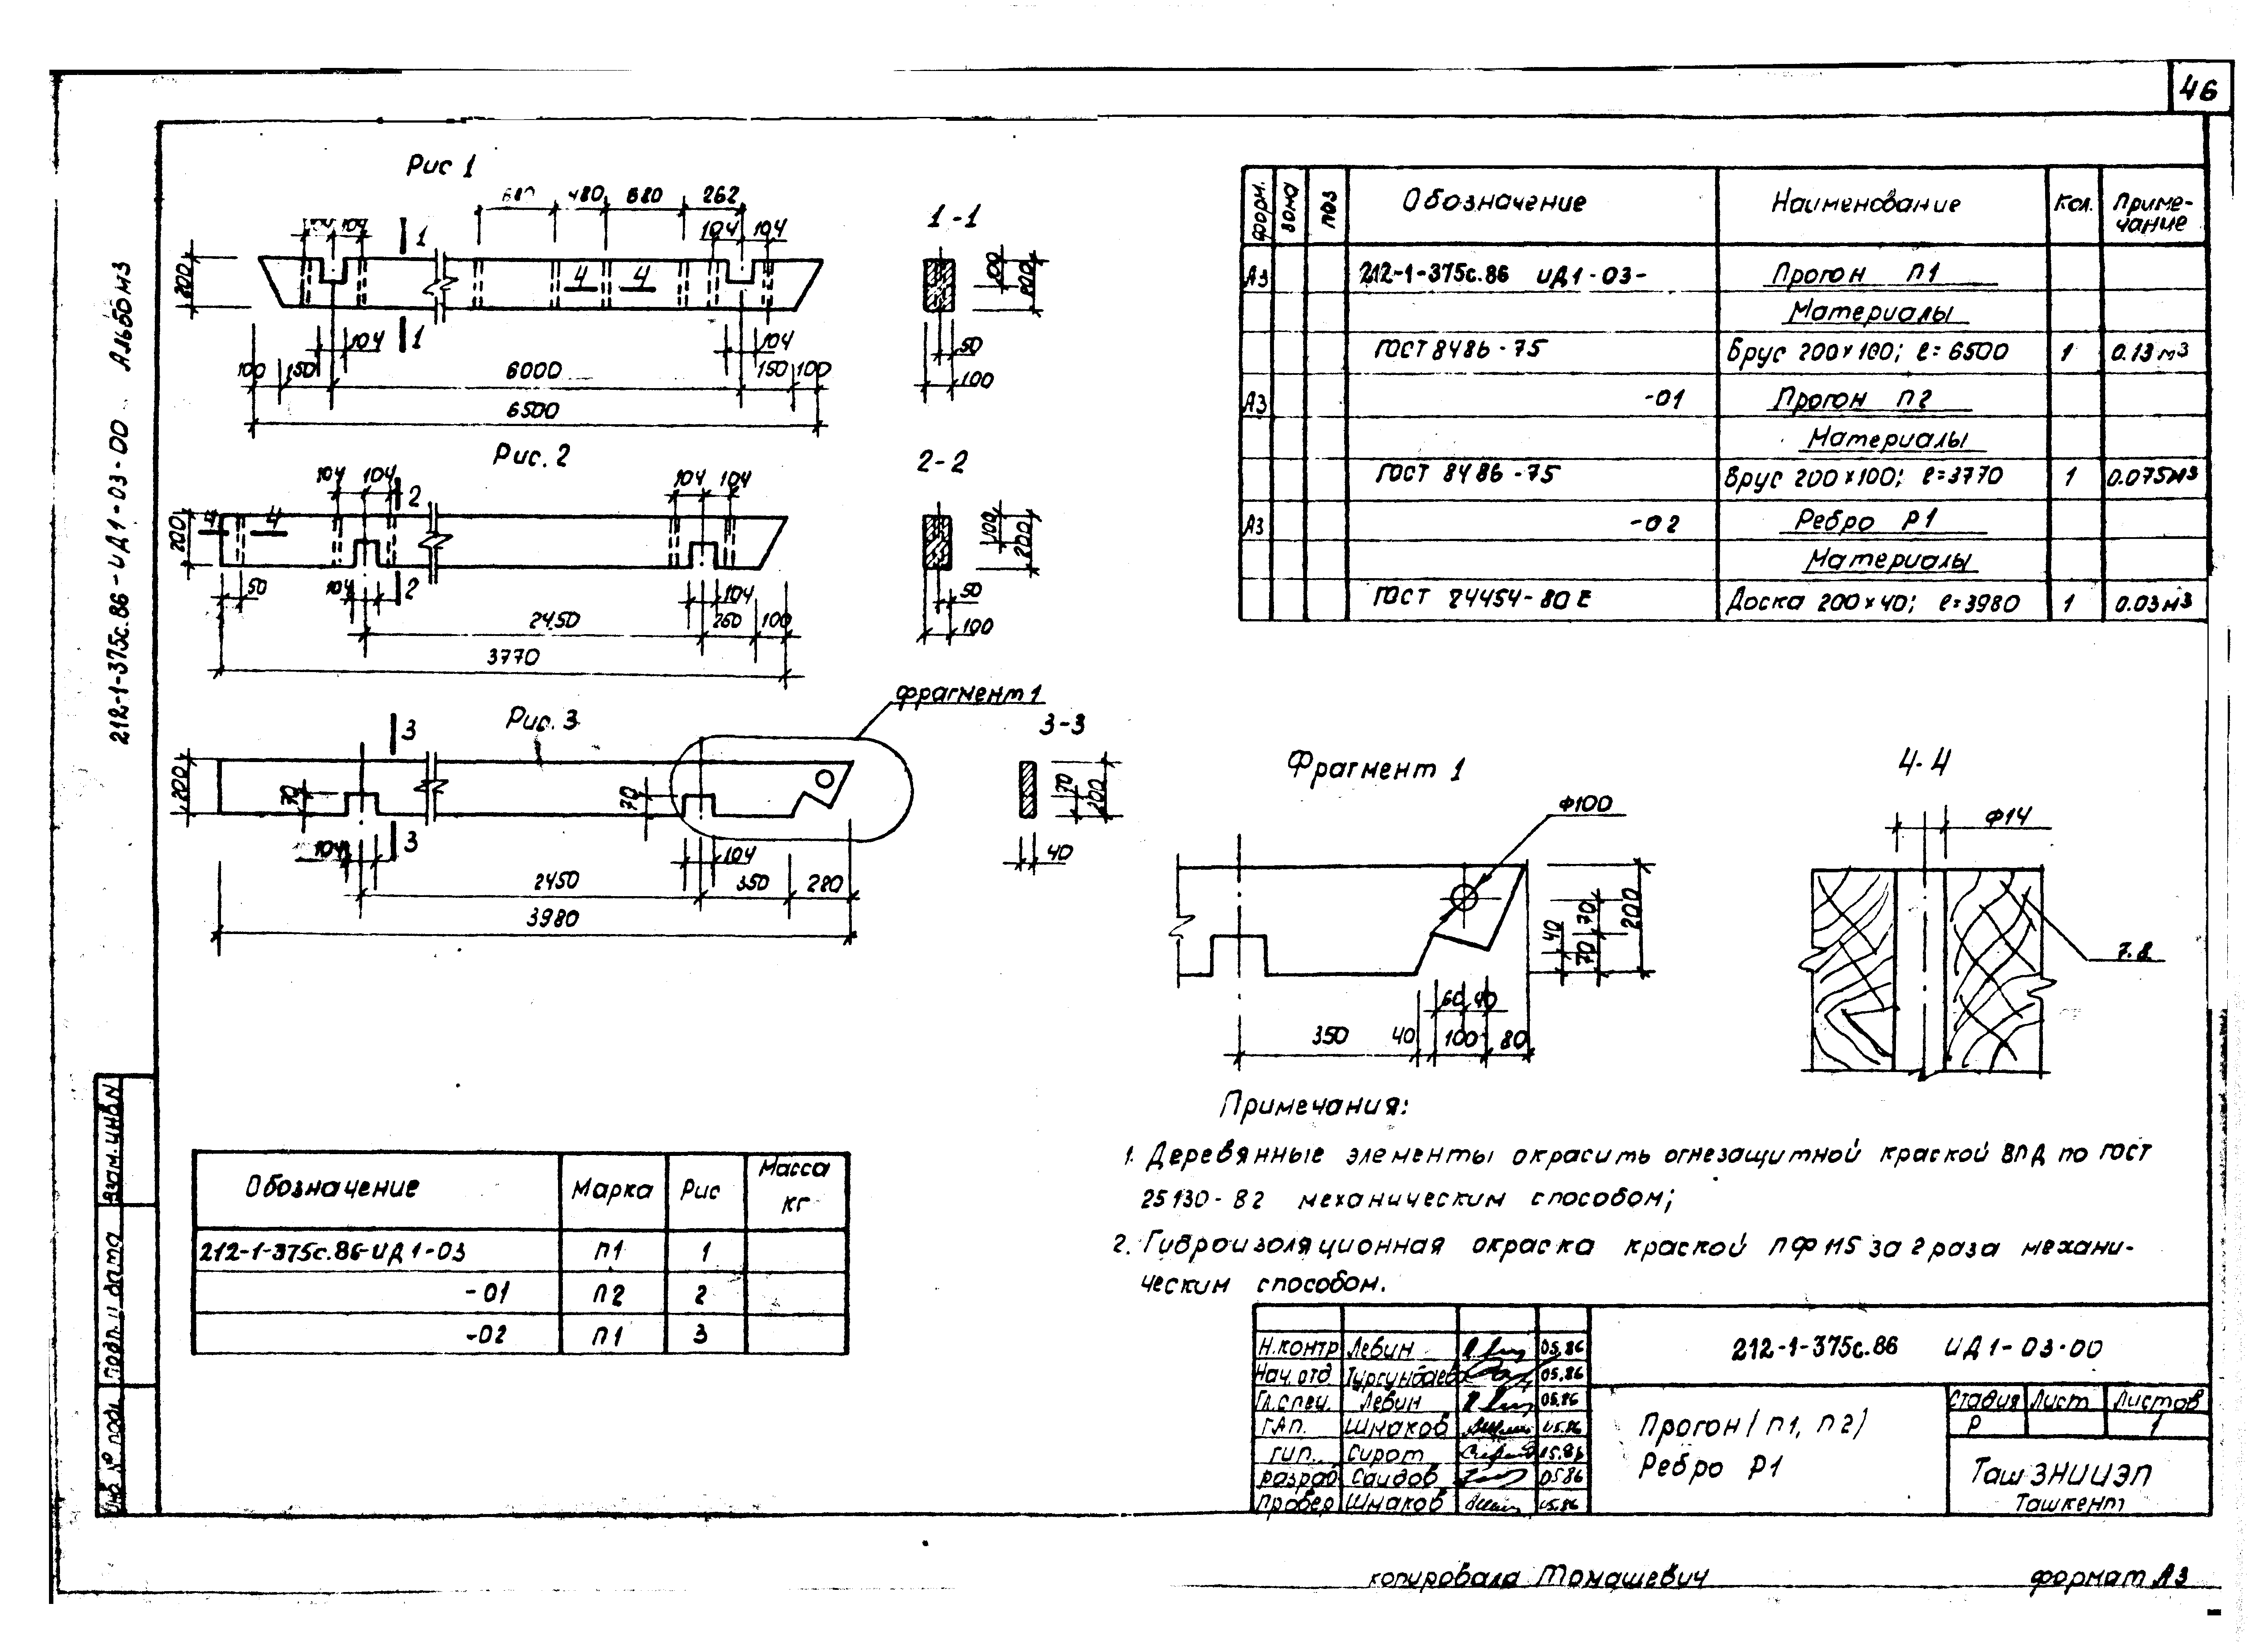 46
212-1-375с.86 - ИД1-03-00 Альбом 3
Рис 1
480 680 262
104 104
104 104
1
4 4
200
104
1
104
100 150 6000 150 100
6500
1-1
100
200
50
100
Рис. 2
104 104
2
104 104
4 4
200
50
104
2
104
2450 260 100
3770
2-2
100
200
50
100
Рис. 3
фрагмент 1
3
200
70
70
104
3
104
2450 350 280
3980
3-3
70
200
40
форм. зона поз Обозначение Наименование Кол. Приме-
чание
А3 212-1-375с.86 ИД1-03- Прогон П1
Материалы
ГОСТ 8486-75 Брус 200×100; ℓ=6500 1 0.13 м3
А3 -01 Прогон П2
Материалы
ГОСТ 8486-75 Брус 200×100; ℓ=3770 1 0.075м3
А3 -02 Ребро Р1
Материалы
ГОСТ 24454-80Е Доска 200×40; ℓ=3980 1 0.03м3
Фрагмент 1
Ф100
40
70
70
200
60 40
350 40 100 80
4-4
Ф14
7.8
Примечания:
1. Деревянные элементы окрасить огнезащитной краской ВПД по ГОСТ
25130-82 механическим способом;
2. Гидроизоляционная окраска краской ПФ 115 за 2 раза механи-
ческим способом.
Обозначение Марка Рис Масса
кг
212-1-375с.86-ИД1-03 П1 1
-01 П2 2
-02 П1 3
Взам. инв N
Подп. и дата
Инв № подл
Н.контр Левин 05.86
Нач. отд. Тургунбаева 05.86
Гл.спец. Левин 05.86
ГАП. Шмаков 05.86
ГИП. Сирот 05.86
Разраб Саидов 05.86
Провер Шмаков 05.86
212-1-375с.86 ИД1-03-00
Прогон (П1, П2)
Ребро Р1
Стадия Лист Листов
Р 1
ТашЗНИИЭП
Ташкент
копировала Томашевич формат А3